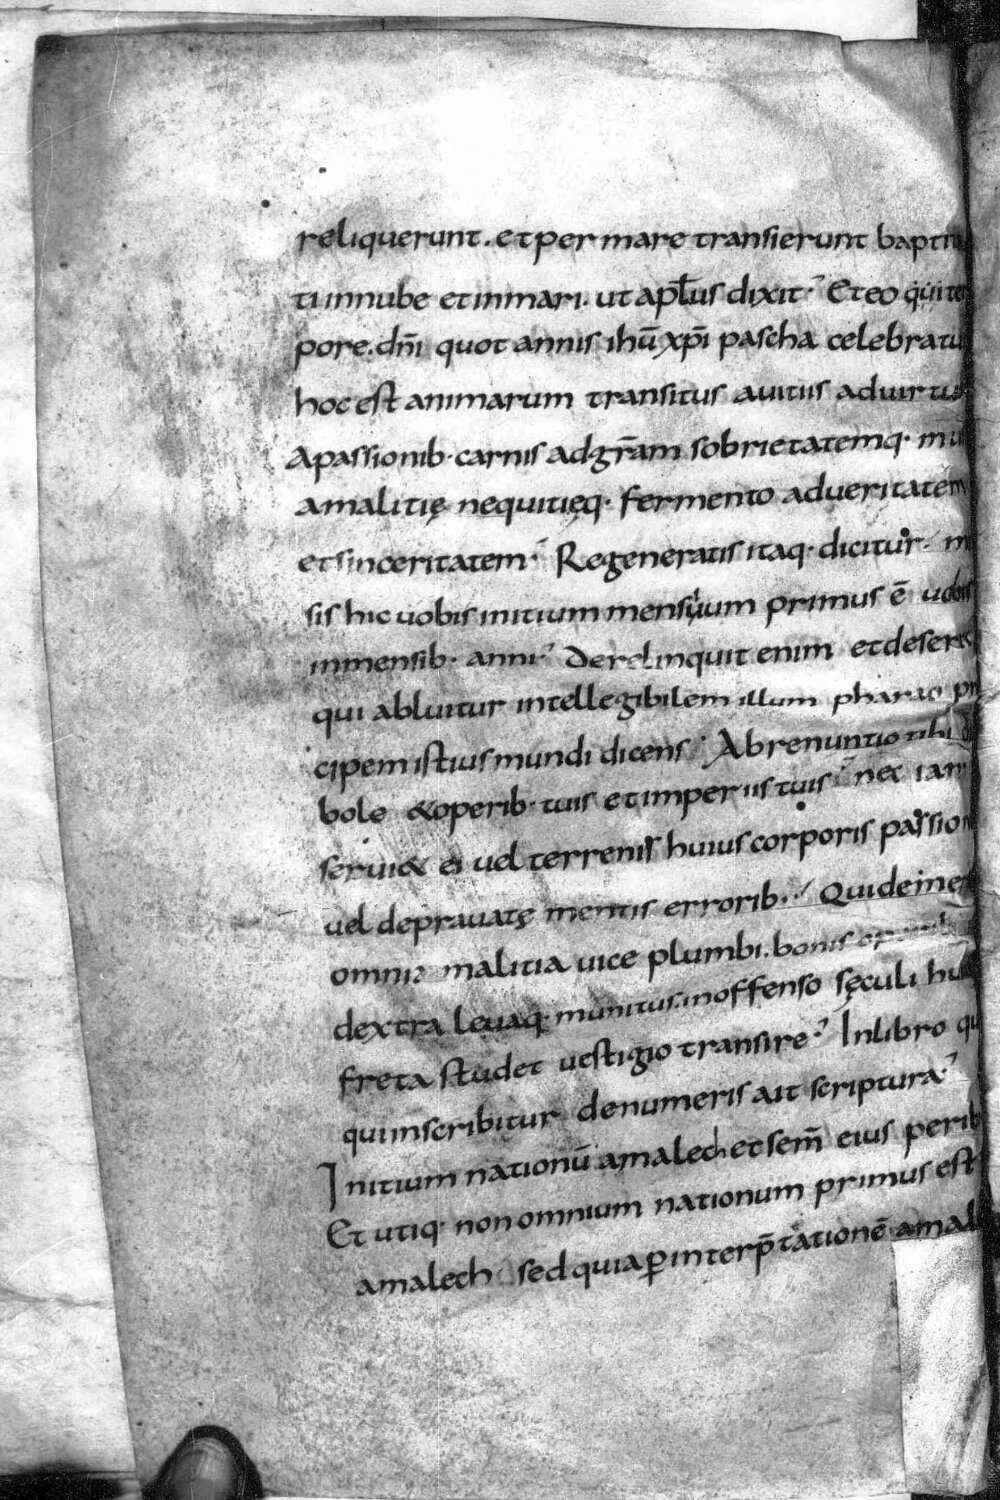 reliquerunt. et per mare transierunt bapti
ti innube et inmari. ut apłus dixit. Et eo q̇ui te
pore. dn̄i quot annis ihū xp̄i pascha celebratu
hoc est animarum transitus auitiis aduirtu
apassionib· carnis ad gr̄am sobrietatemq·
amalitię nequitięq· fermento adueritatem
et sinceritatem· Regeneratis itaq· dicitur· m
sis hic uobis initium mensium primus ē uobis
inmensib· anni· Derelinquit enim et deserit
qui abluitur intellegibilem illum pharao pri
cipem istius mundi dicens· Abrenuntio tibi
bole & operib· tuis et imperiis tuis nec iam
serui& ei uel terrenis huius corporis passion
uel deprauatę mentis errorib. Qui deme
omnia malitia uice plumbi. bonis operib
dextra leuaq· munitus. inoffenso sęculi hu
freta studet uestigio transire· In libro qu
qui inscribitur de numeris ait scriptura·
Initium nationū amalech et sem̄ eius perib
Et utiq· non omnium nationum primus est
amalech sed quia ꝑ interp̄tationē amal